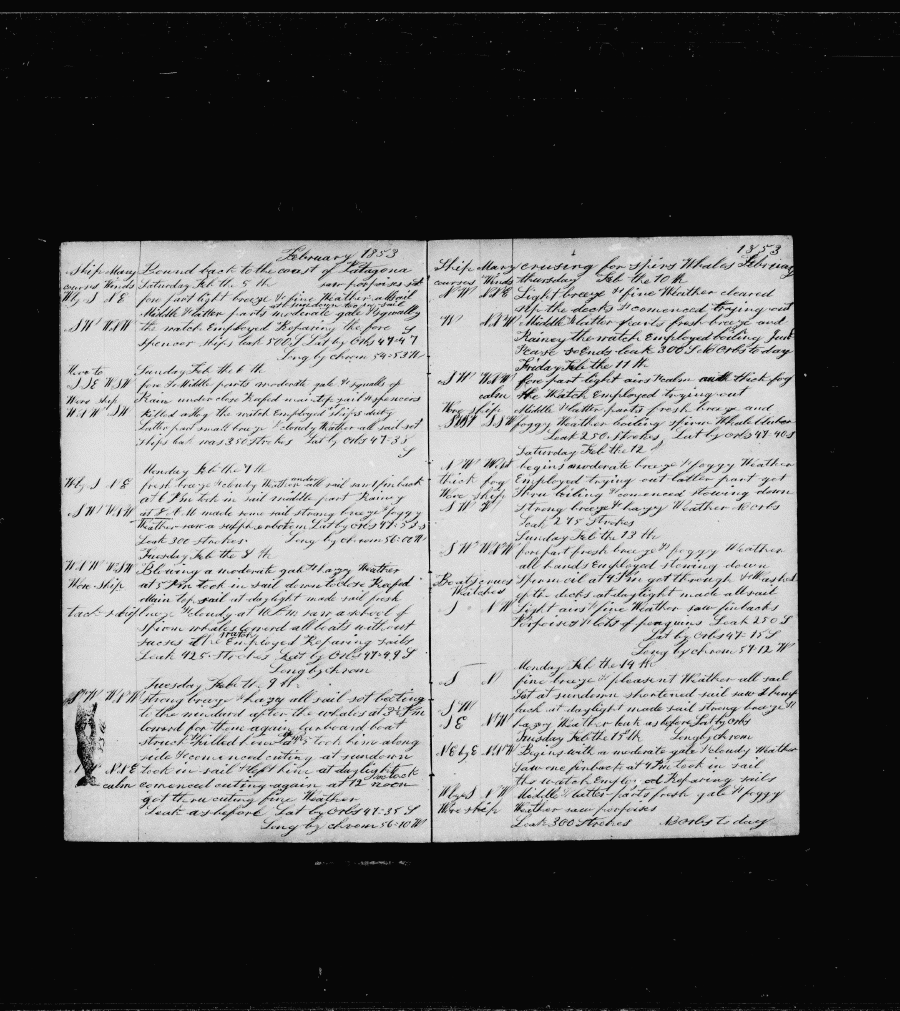 February 1853
Ship Mary Bound back to the coast of Patagona
courses Winds Saturday Feb the 5 th saw porpoises
W by S N E fore part light breeze & fine Weather all sail set
at sundown took in sail
Middle & latter parts moderate gale & squally
S W W N W the watch Employed Reparing the fore
spencer ships leak 500 S Lat by Orbs 47-47 S
Long by chrom 54-53 W
Hove to Sunday Feb the 6 th
S S E W S W fore & Middle parts moderate gale & squalls of
Wore ship Rain under close Reefed main top sail & spencers
W N W S W killed a hog the watch Employed ships duty
Latter part small breeze & cloudy Wather all sail set
ships leak was 350 strokes Lat by Orbs 47-38
S
Monday Feb the 7 th
W by S N E fresh breeze & cloudy Weather under all sail saw 1 finback
at 6 P m took in sail middle part Rainey
S W W N W at 4 A M made some sail strong breeze & foggy
Weather saw a sulpher bottom Lat by Orbs 47-53 S
Leak 300 strokes Long by chrom 56-00 W
Tuesday Feb the 8 th
W N W W S W Blowing a moderate gale & hazy Weather
Wore ship at 5 P m took in sail down to close Reefed
Main top sail at daylight made sail fresh
tack ship breeze & cloudy at 10 A m saw a school of
spirm whales lowerd all boats without
sucses the watch Employed Reparing sails
Leak 425 strokes Lat by Orbs 47-49 S
Long by chrom
Tuesday Feb the 9 th
S W W N W strong breeze & hazy all sail set beeting
to the windurd after the whales at 3 P m
lowerd for them again larboard boat
struck & killed hour at 5 took him along
side & comenced cuting at sundown
N N E took in sail & left him at daylight
5 oclock
calm comenced cutting again at 12 noon
got threw cuting fine Weather
Leak as before Lat by Orbs 47-35 S
Long by chrom 56-10 W
1853
Ship Mary cruising for spirm Whales Februay
courses Winds Thursday Feb the 10 th
N W N N E Light breeze & fine Weather cleared
up the decks & comenced trying out
W N N W Middle & latter parts fresh breeze and
Rainey the watch Employed boiling Junk
& case so Ends leak 300 S No Orbs to day
Friday Feb the 11 th
S W W N W fore part light airs & calm with thick fog
calm the Watch Employed trying out
Wore ship Middle & latter parts fresh breeze and
S S W foggy Weather boiling spirm Whale blubber
Leak 250 Strokes Lat by Orbs 47-40 S
Saturday Feb the 12
N W West begins moderate breeze & foggy Weather
thick fog Employed trying out latter part got
Wore ship threw boiling & comenced stowing down
S W W strong breeze & hazy Weather No Orbs
Leak 275 Strokes
Sunday Feb the 13 th
S W W N W fore part fresh breeze & foggy Weather
all hands Employed stowing down
Boats crews spirm oil at 4 P m got through & Washed
Watches up the decks at daylight made all sail
S N W Light airs & fine Weather saw finbacks
Porpoises & lots of penquins Leak 250 S
Lat by Orbs 47-15 S
Long by chrom 57-12 W
Monday Feb the 14 th
S N fine breeze & pleasent Weather all sail
Set at sundown shortened sail saw 1 hump
S W back at daylight made sail strong breeze &
S E N W hazy Weather leak as before Lat by Orbs
Tuesday Feb the 15 th Long by chrom
N E by E N N W Begins with a moderate gale & cloudy Weather
Saw one finback at 4 P m took in sail
the watch Employed Reparing sails
W by S N W Middle & latter parts fresh gale & foggy
Wore ship Weather saw porpoises
Leak 300 strokes No Orbs to day